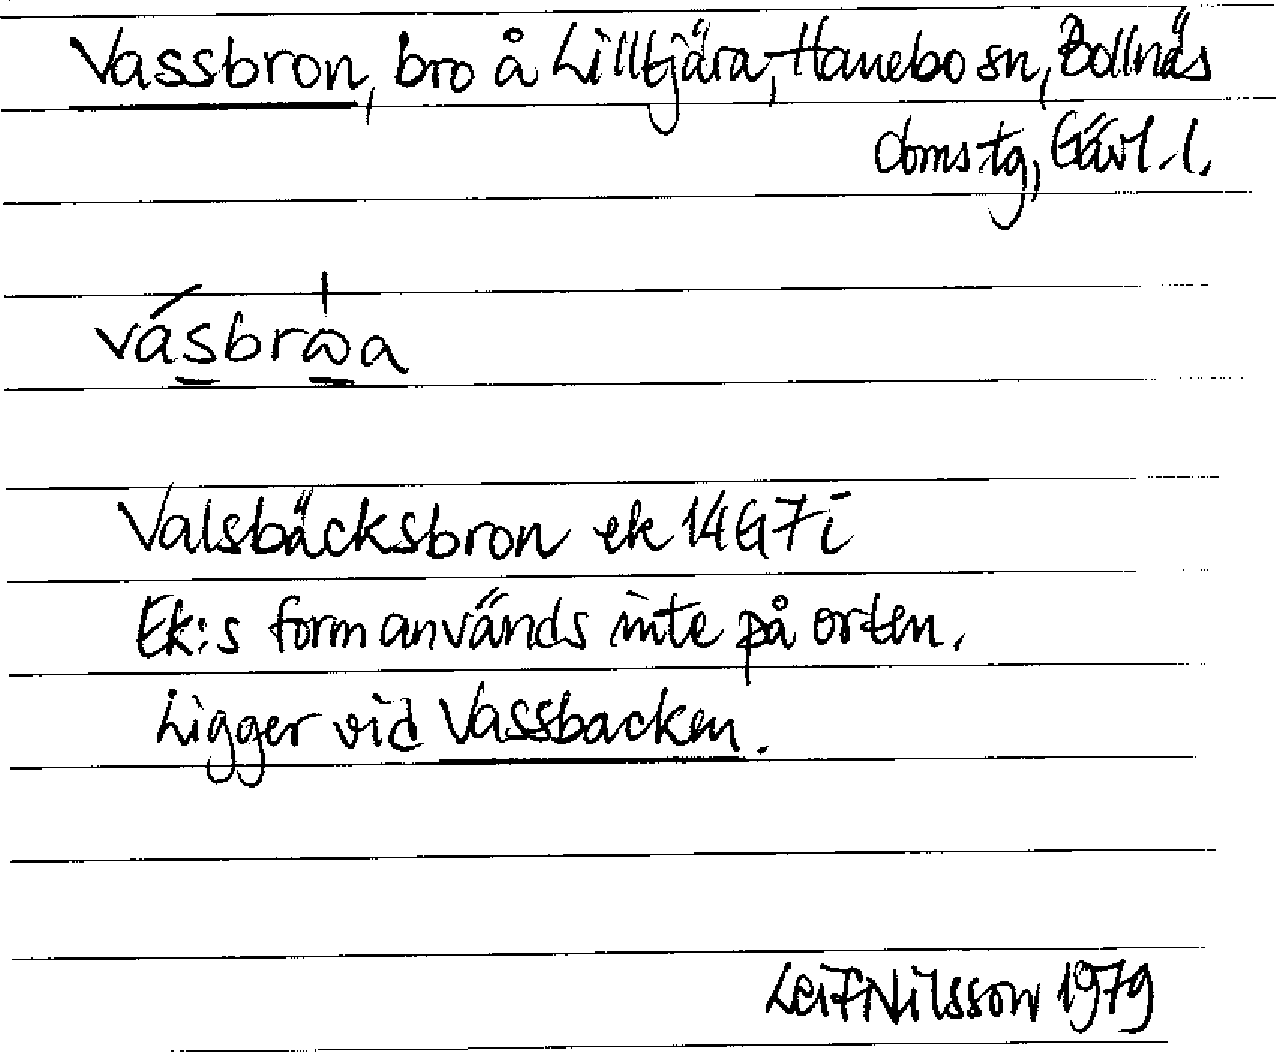 Vassbron, bro å Lilltjära, Hanebo sn, Bollnäs
domstg, Gävl. l.
vásbrωa
Valsbäcksbron ek 14G7i
Ek:s form används inte på orten.
Ligger vid Vassbacken.
Leif Nilsson 1979